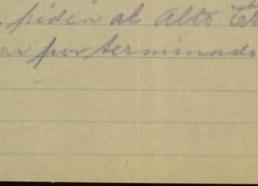 piden al Alto
por terminado